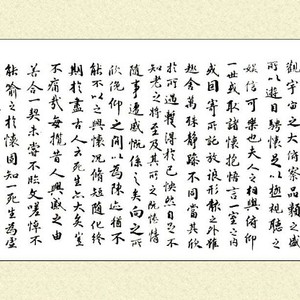 觀宇宙之大俯察品類之盛
所以遊目騁懷足以極視聽之
娛信可樂也夫人之相與俯仰
一世或取諸懷抱悟言一室之內
或因寄所託放浪形骸之外雖
趣舍萬殊靜躁不同當其欣
於所遇暫得於己怏然自足不
知老之將至及其所之既惓情
隨事遷感慨係之矣向之所
欣俛仰之間以為陳迹猶不
能不以之興懷況脩短隨化終
期於盡古人云死生亦大矣豈
不痛哉每攬昔人興感之由
若合一契未嘗不臨文嗟悼不
能喻之於懷固知一死生為虛